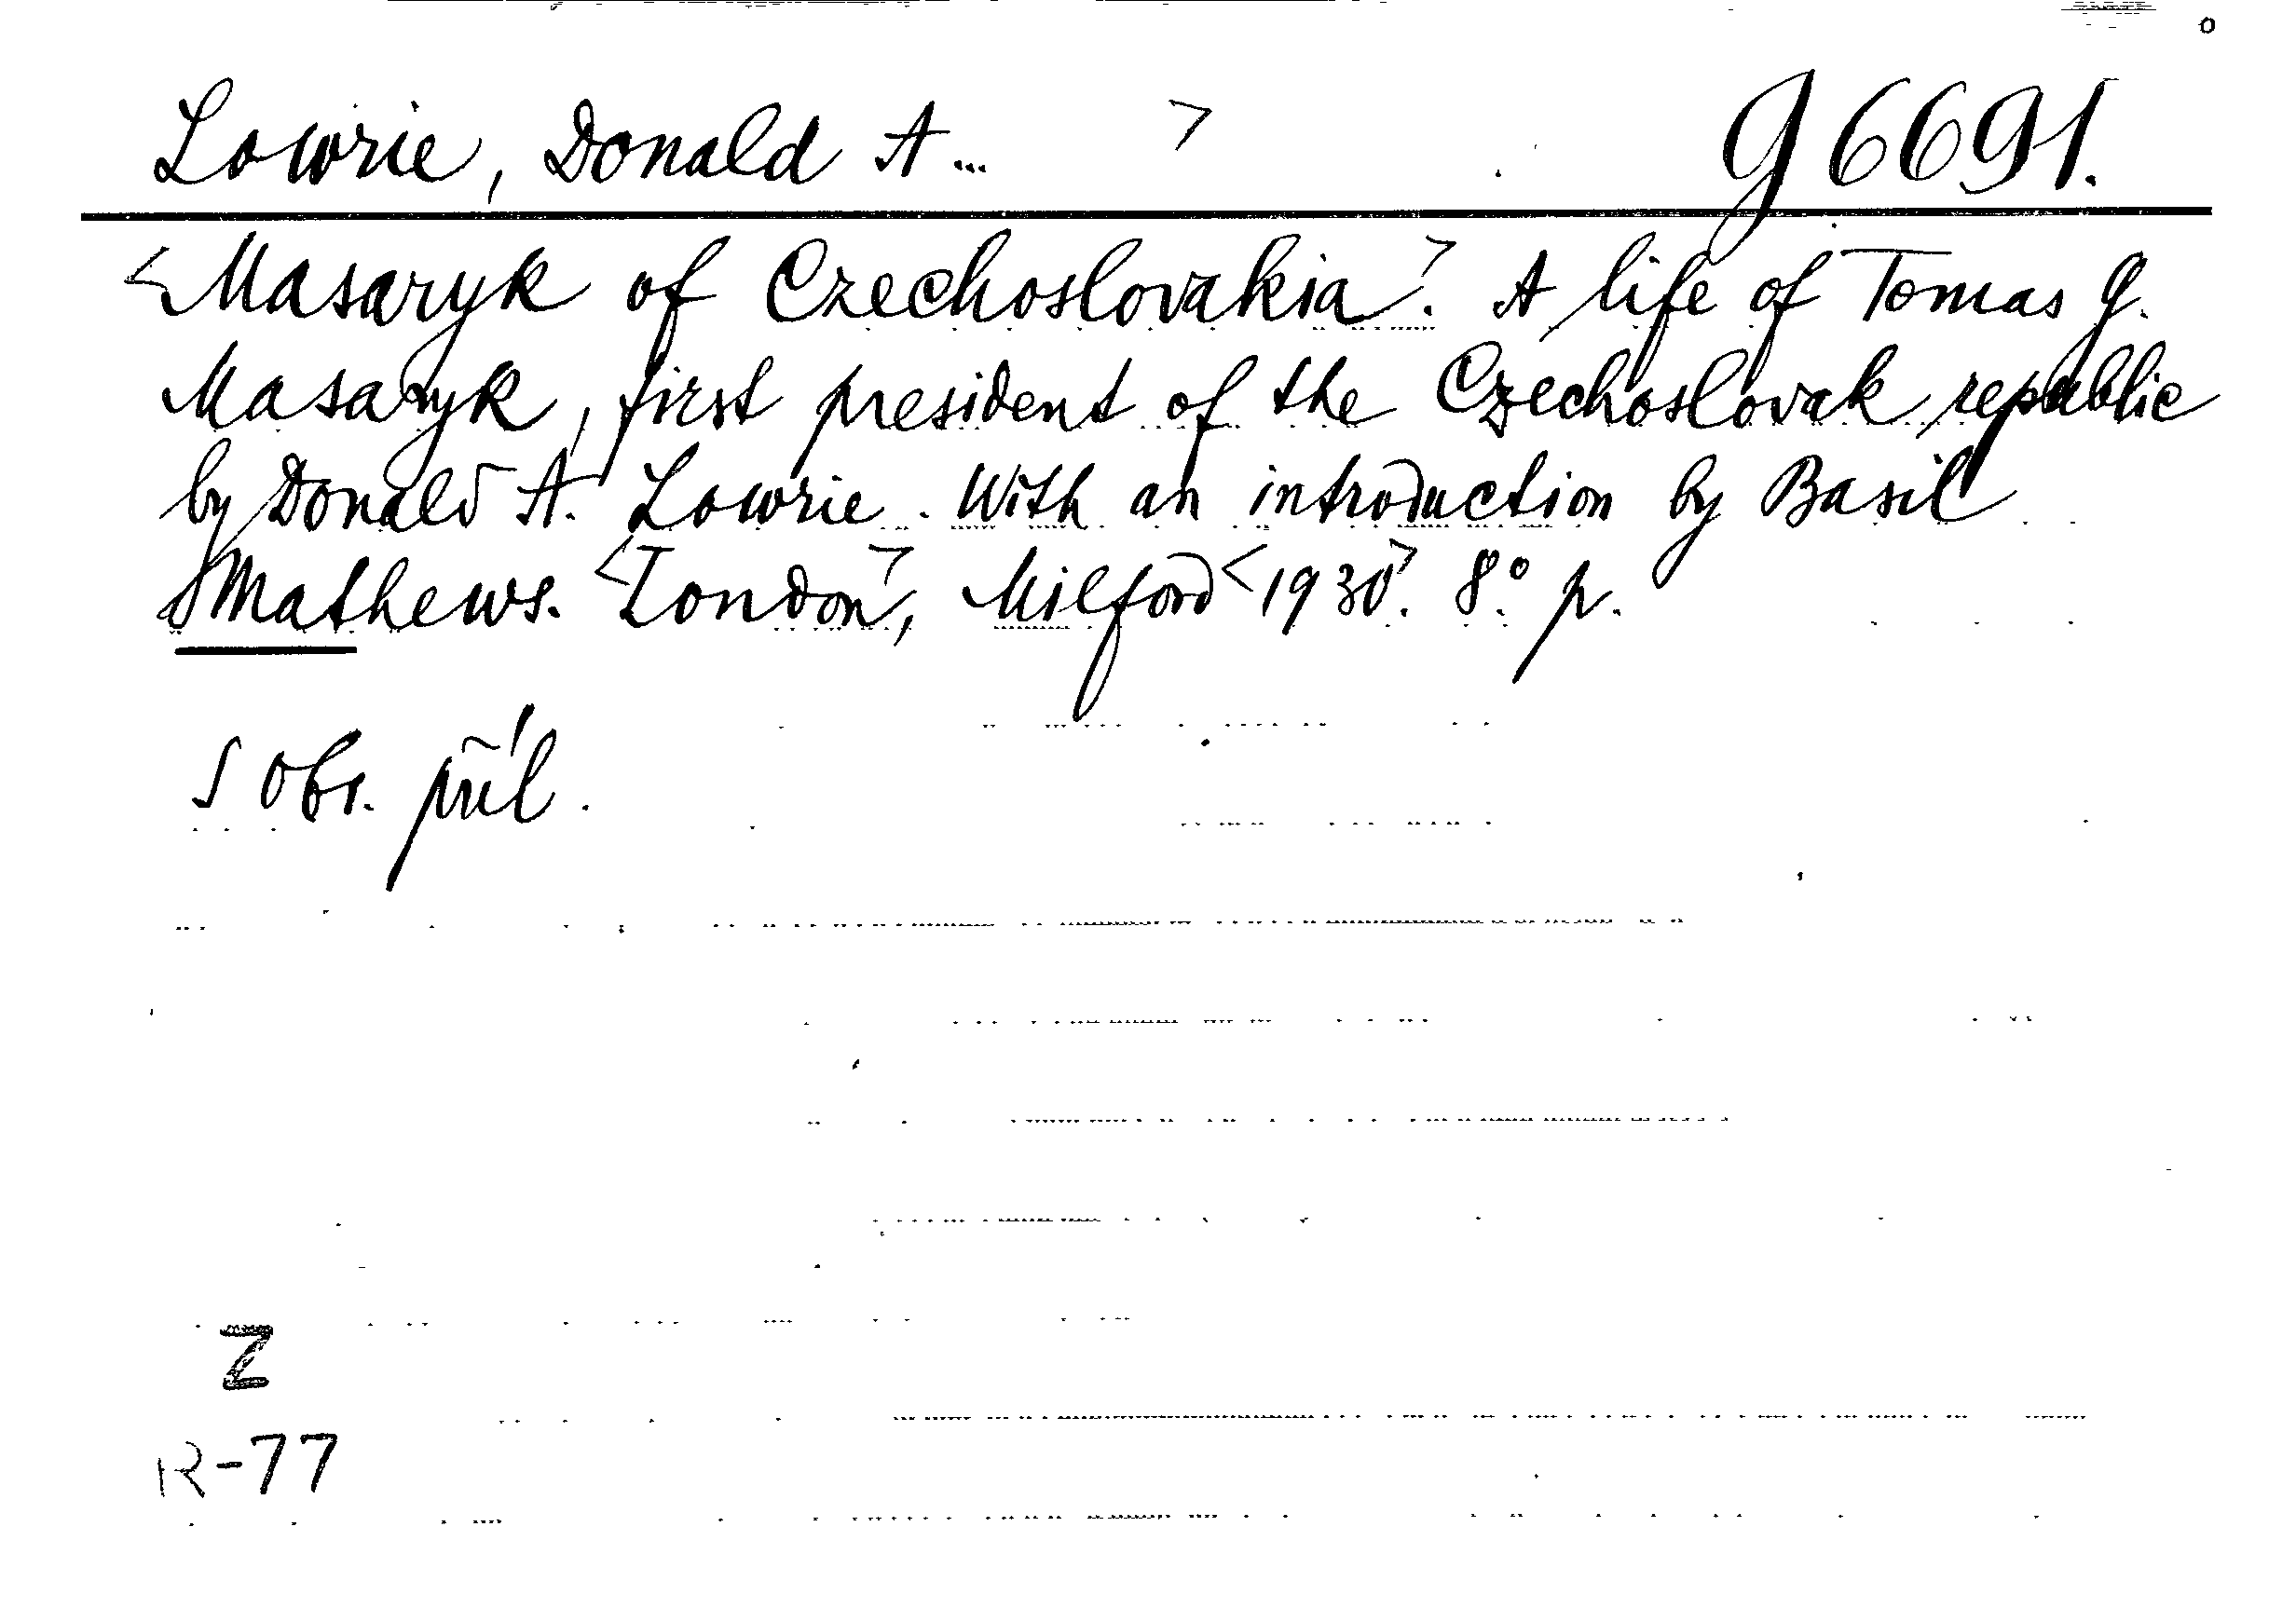 Lowrie, Donald A... > g 6691.
<Masaryk of Czechoslovakia>. A life of Tomas G.
Masaryk, first president of the Czechoslovak republic
by Donald A. Lowrie. With an introduction by Basil
Mathews. <London>, Milford <1930>. 8° p.
S obr. příl.
Z
R-77